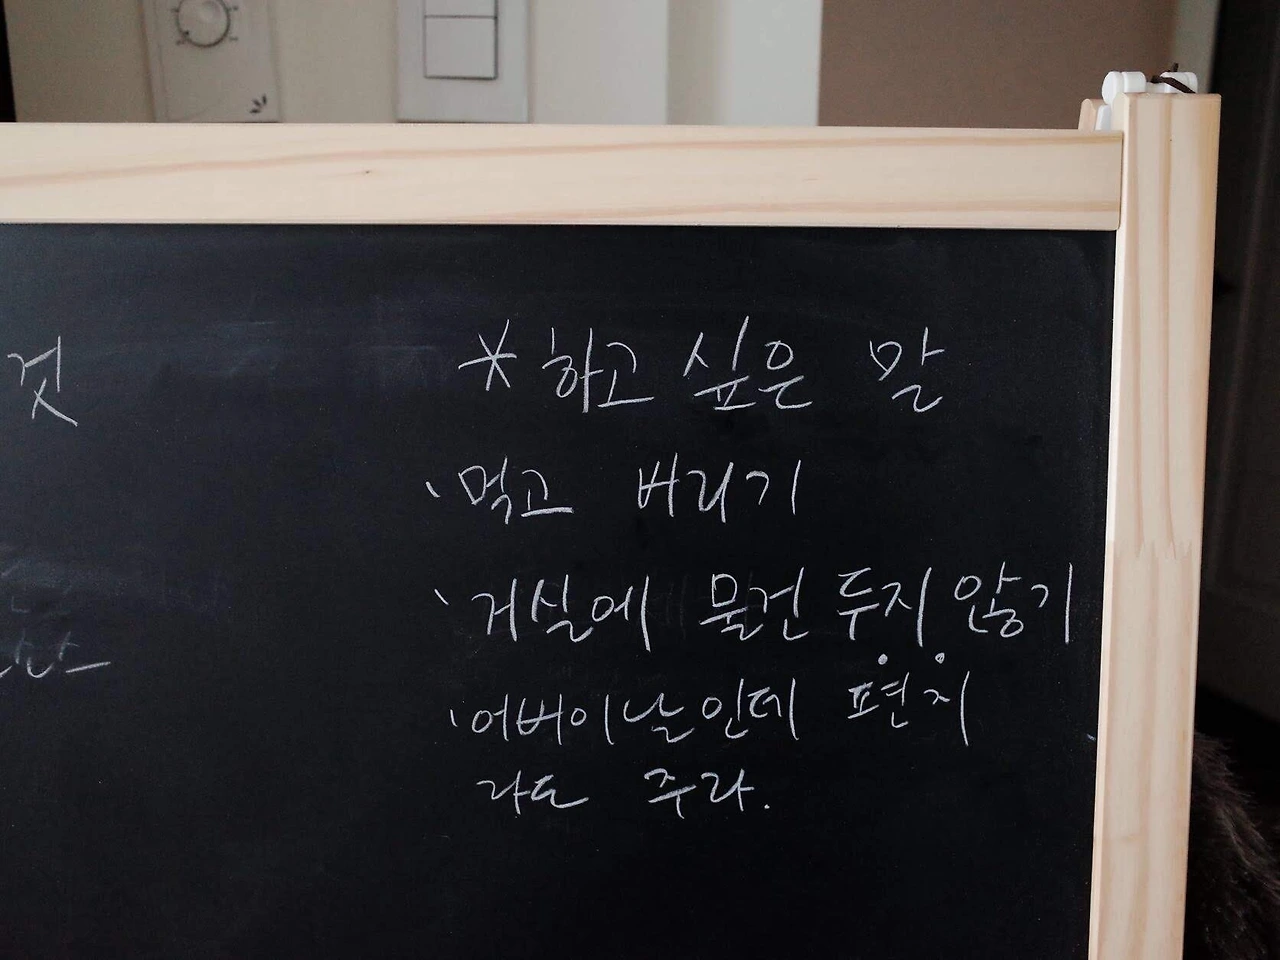 것
* 하고 싶은 말
· 먹고 버리기
· 거실에 물건 두지 않기
· 어버이날인데 편지
라도 주라.